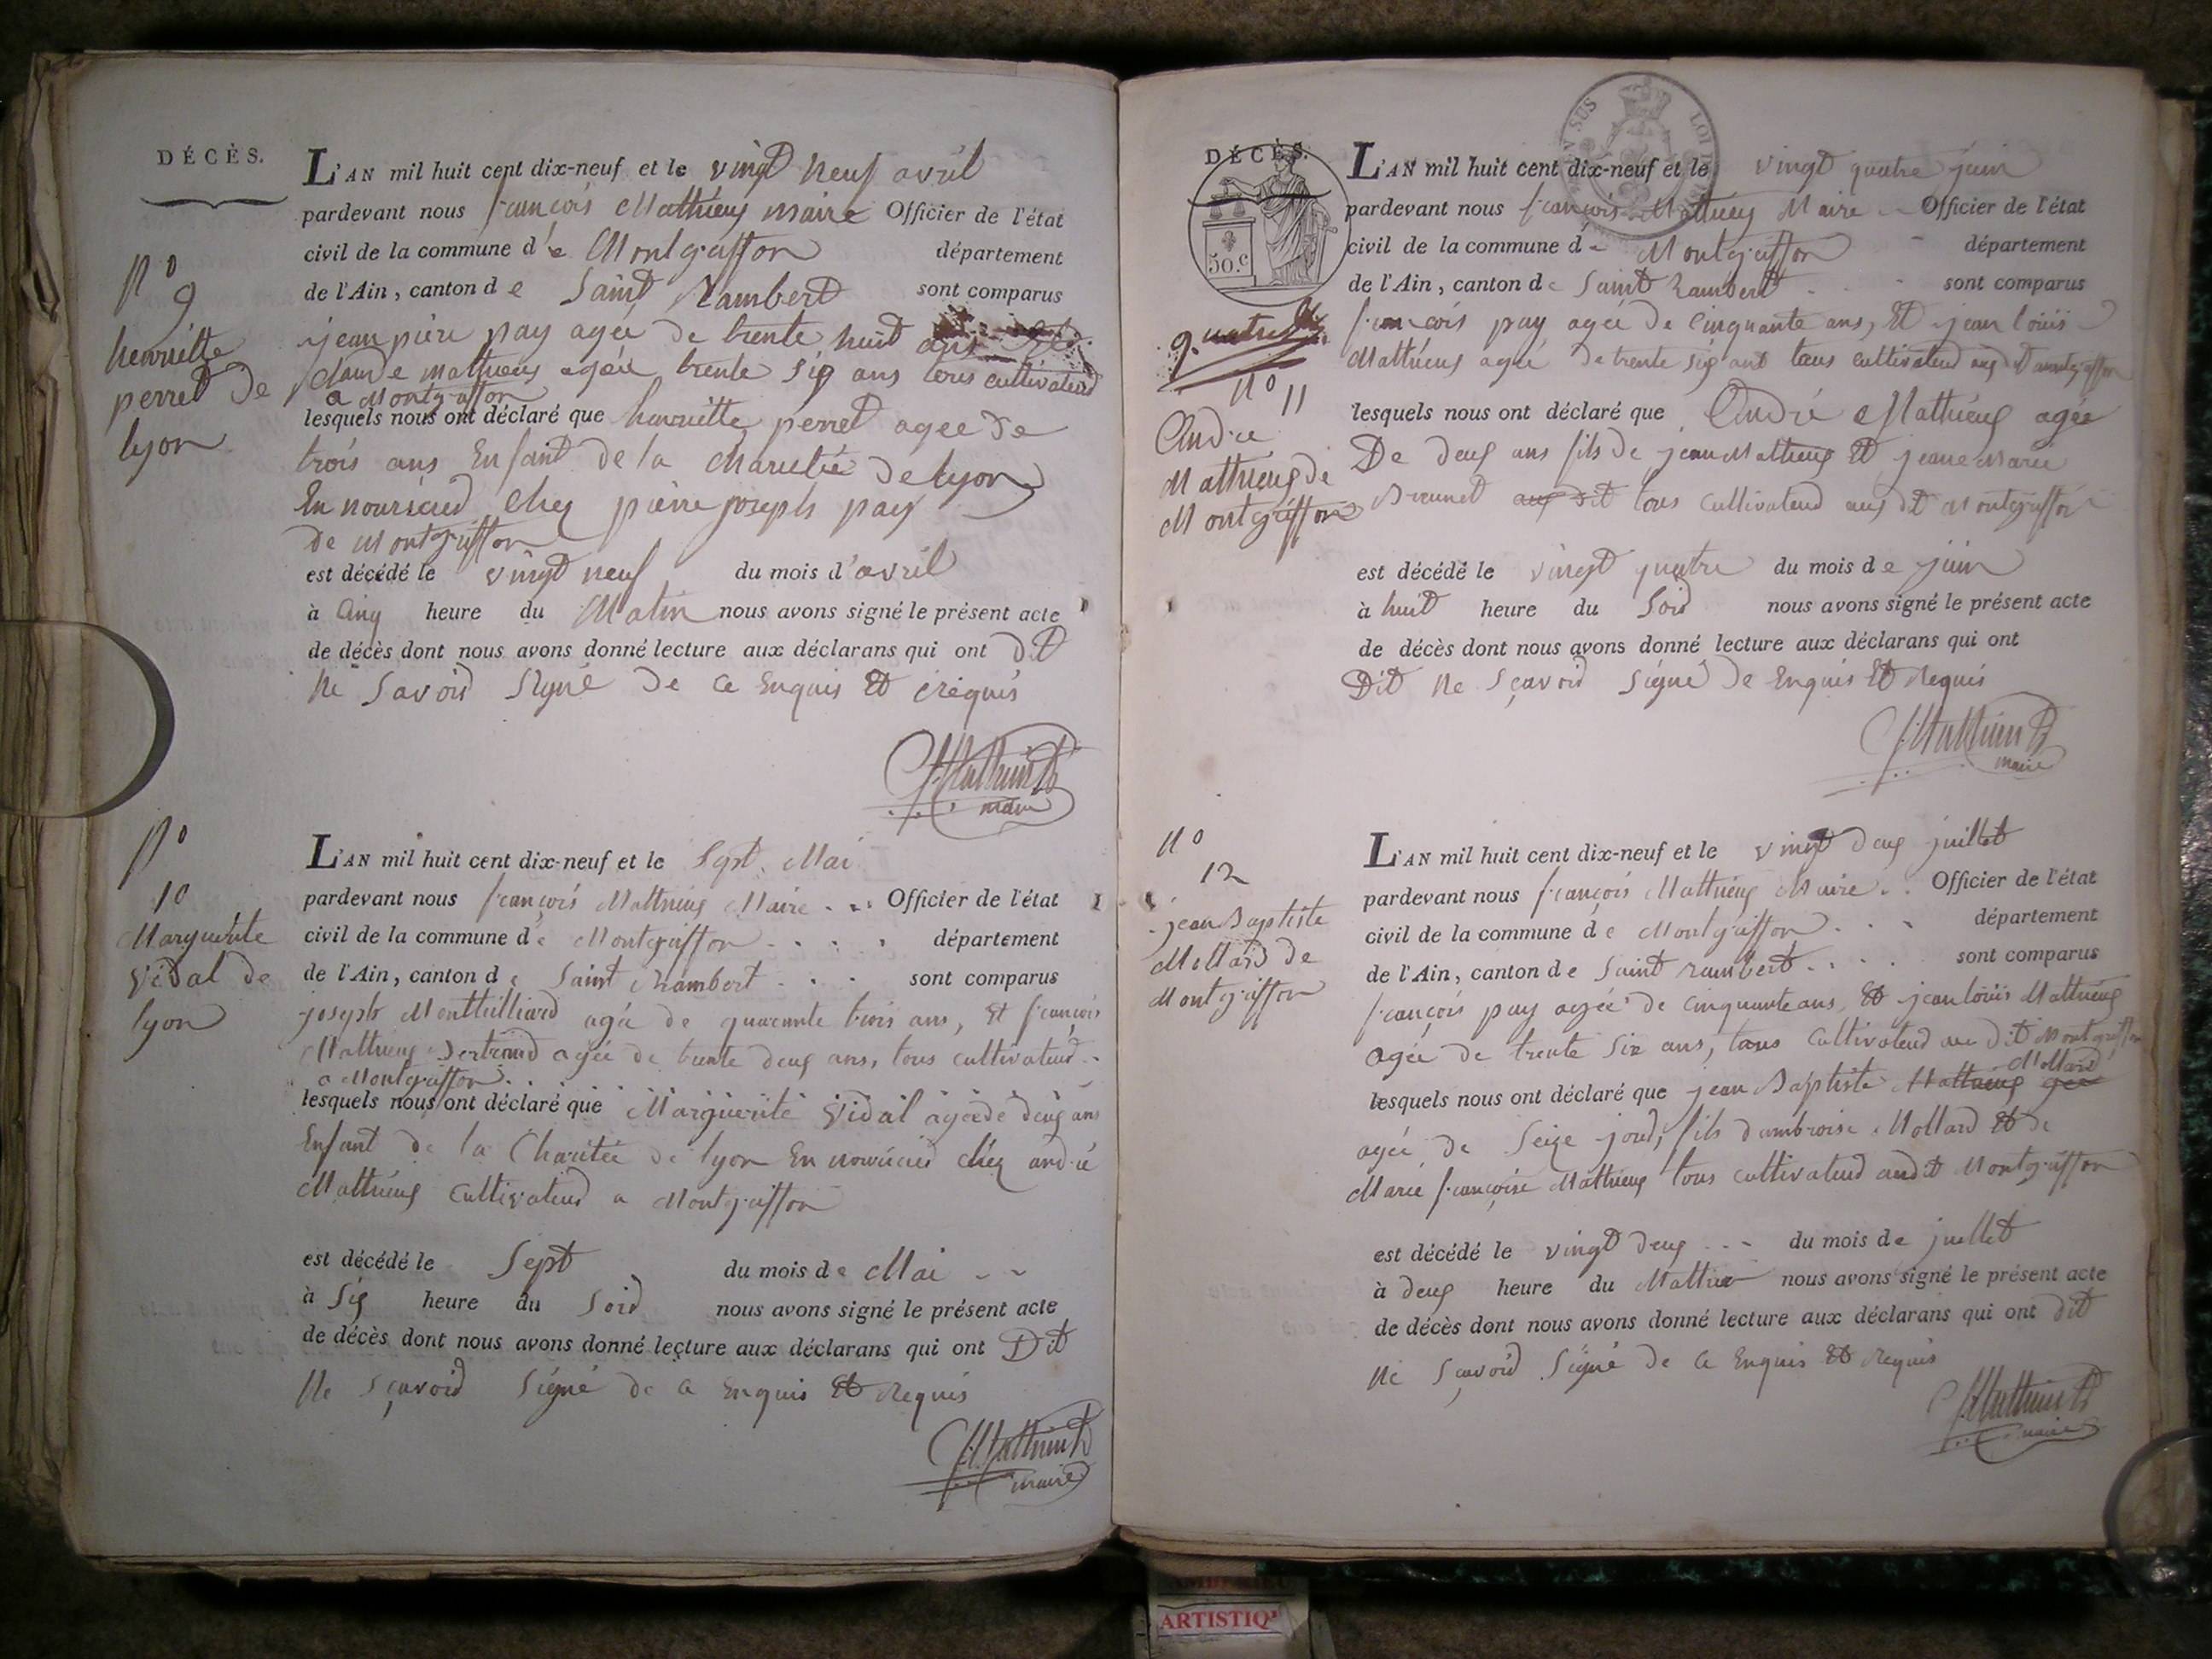 DÉCÈS.
L'AN mil huit cent dix-neuf et le vingt neuf avril
pardevant nous françois Mathieux maire Officier de l'état
civil de la commune de Montgriffon département
de l'Ain, canton de Saint Rambert sont comparus
jean piere pay agée de trente huit ans
claude mathieux agée trente six ans tous cultivateurs
a Montgriffon
lesquels nous ont déclaré que henriette perret agée de
trois ans Enfant de la charitée de lyon
En nouricied Chez pierre joseph pay
de Montgriffon
est décédé le vingt neuf du mois d'avril
à Cinq heure du Matin nous avons signé le présent acte
de décès dont nous avons donné lecture aux déclarans qui ont dit
Ne Savoid Signé de Ce Enquis Et requis
F. Mathieu B
maire
N° 9
henriette
perret de
lyon
N°
10
Marguerite
Vidal de
lyon
L'AN mil huit cent dix-neuf et le Sept Mai
pardevant nous françois Mathieux Maire Officier de l'état
civil de la commune de Montgriffon département
de l'Ain, canton de Saint Rambert sont comparus
joseph Montbilliard agée de quarante trois ans, Et françois
Mathieux Bertrand agée de trente deux ans, tous cultivateurs
a Montgriffon
lesquels nous ont déclaré que Marguerite Vidal agée de deux ans
Enfant de la Charitée de lyon En nouricied chez andré
Mathieux Cultivateud a Montgriffon
est décédé le Sept du mois de Mai
à Six heure du Soid nous avons signé le présent acte
de décès dont nous avons donné lecture aux déclarans qui ont Dit
Ne Sçavoid Signé de Ce Enquis Et Requis
F. Mathieu B
maire
DÉCÈS.
50.c
LOI
L'AN mil huit cent dix-neuf et le vingt quatre juin
pardevant nous françois Mathieux Maire Officier de l'état
civil de la commune de Montgriffon département
de l'Ain, canton de Saint Rambert sont comparus
françois pay agée de Cinquante ans, Et jean louis
Mathieux agée de trente six ans tous cultivateud aud Montgriffon
lesquels nous ont déclaré que André Mathieux agée
De deux ans fils de jean Mathieux Et jeane Marie
Brunet aux dit tous Cultivateud aux dt Montgriffon
est décédé le vingt quatre du mois de juin
à huit heure du Soid nous avons signé le présent acte
de décès dont nous avons donné lecture aux déclarans qui ont
Dit Ne Sçavoid Signé De Enquis Et Requis
F. Mathieu B
maire
N° 11
André
Mathieux de
Montgriffon
N°
12
jean Baptiste
Mollard de
Montgriffon
L'AN mil huit cent dix-neuf et le vingt deux juillet
pardevant nous françois Mathieux Maire Officier de l'état
civil de la commune de Montgriffon département
de l'Ain, canton de Saint rambert sont comparus
françois pay agée de Cinquante ans, Et jean louis Mathieux
agée de trente Six ans, tous Cultivateud au dit Montgriffon
Mollard
lesquels nous ont déclaré que jean Baptiste Mathieux agée
agée de Seize jourd, fils d'ambroise Mollard Et de
Marie françoise Mathieux tous cultivateud audt Montgriffon
est décédé le vingt deux du mois de juillet
à deux heure du Mattin nous avons signé le présent acte
de décès dont nous avons donné lecture aux déclarans qui ont dit
Ne Sçavoid Signé de Ce Enquis Et Requis
F. Mathieu B
maire
ARTISTIQ